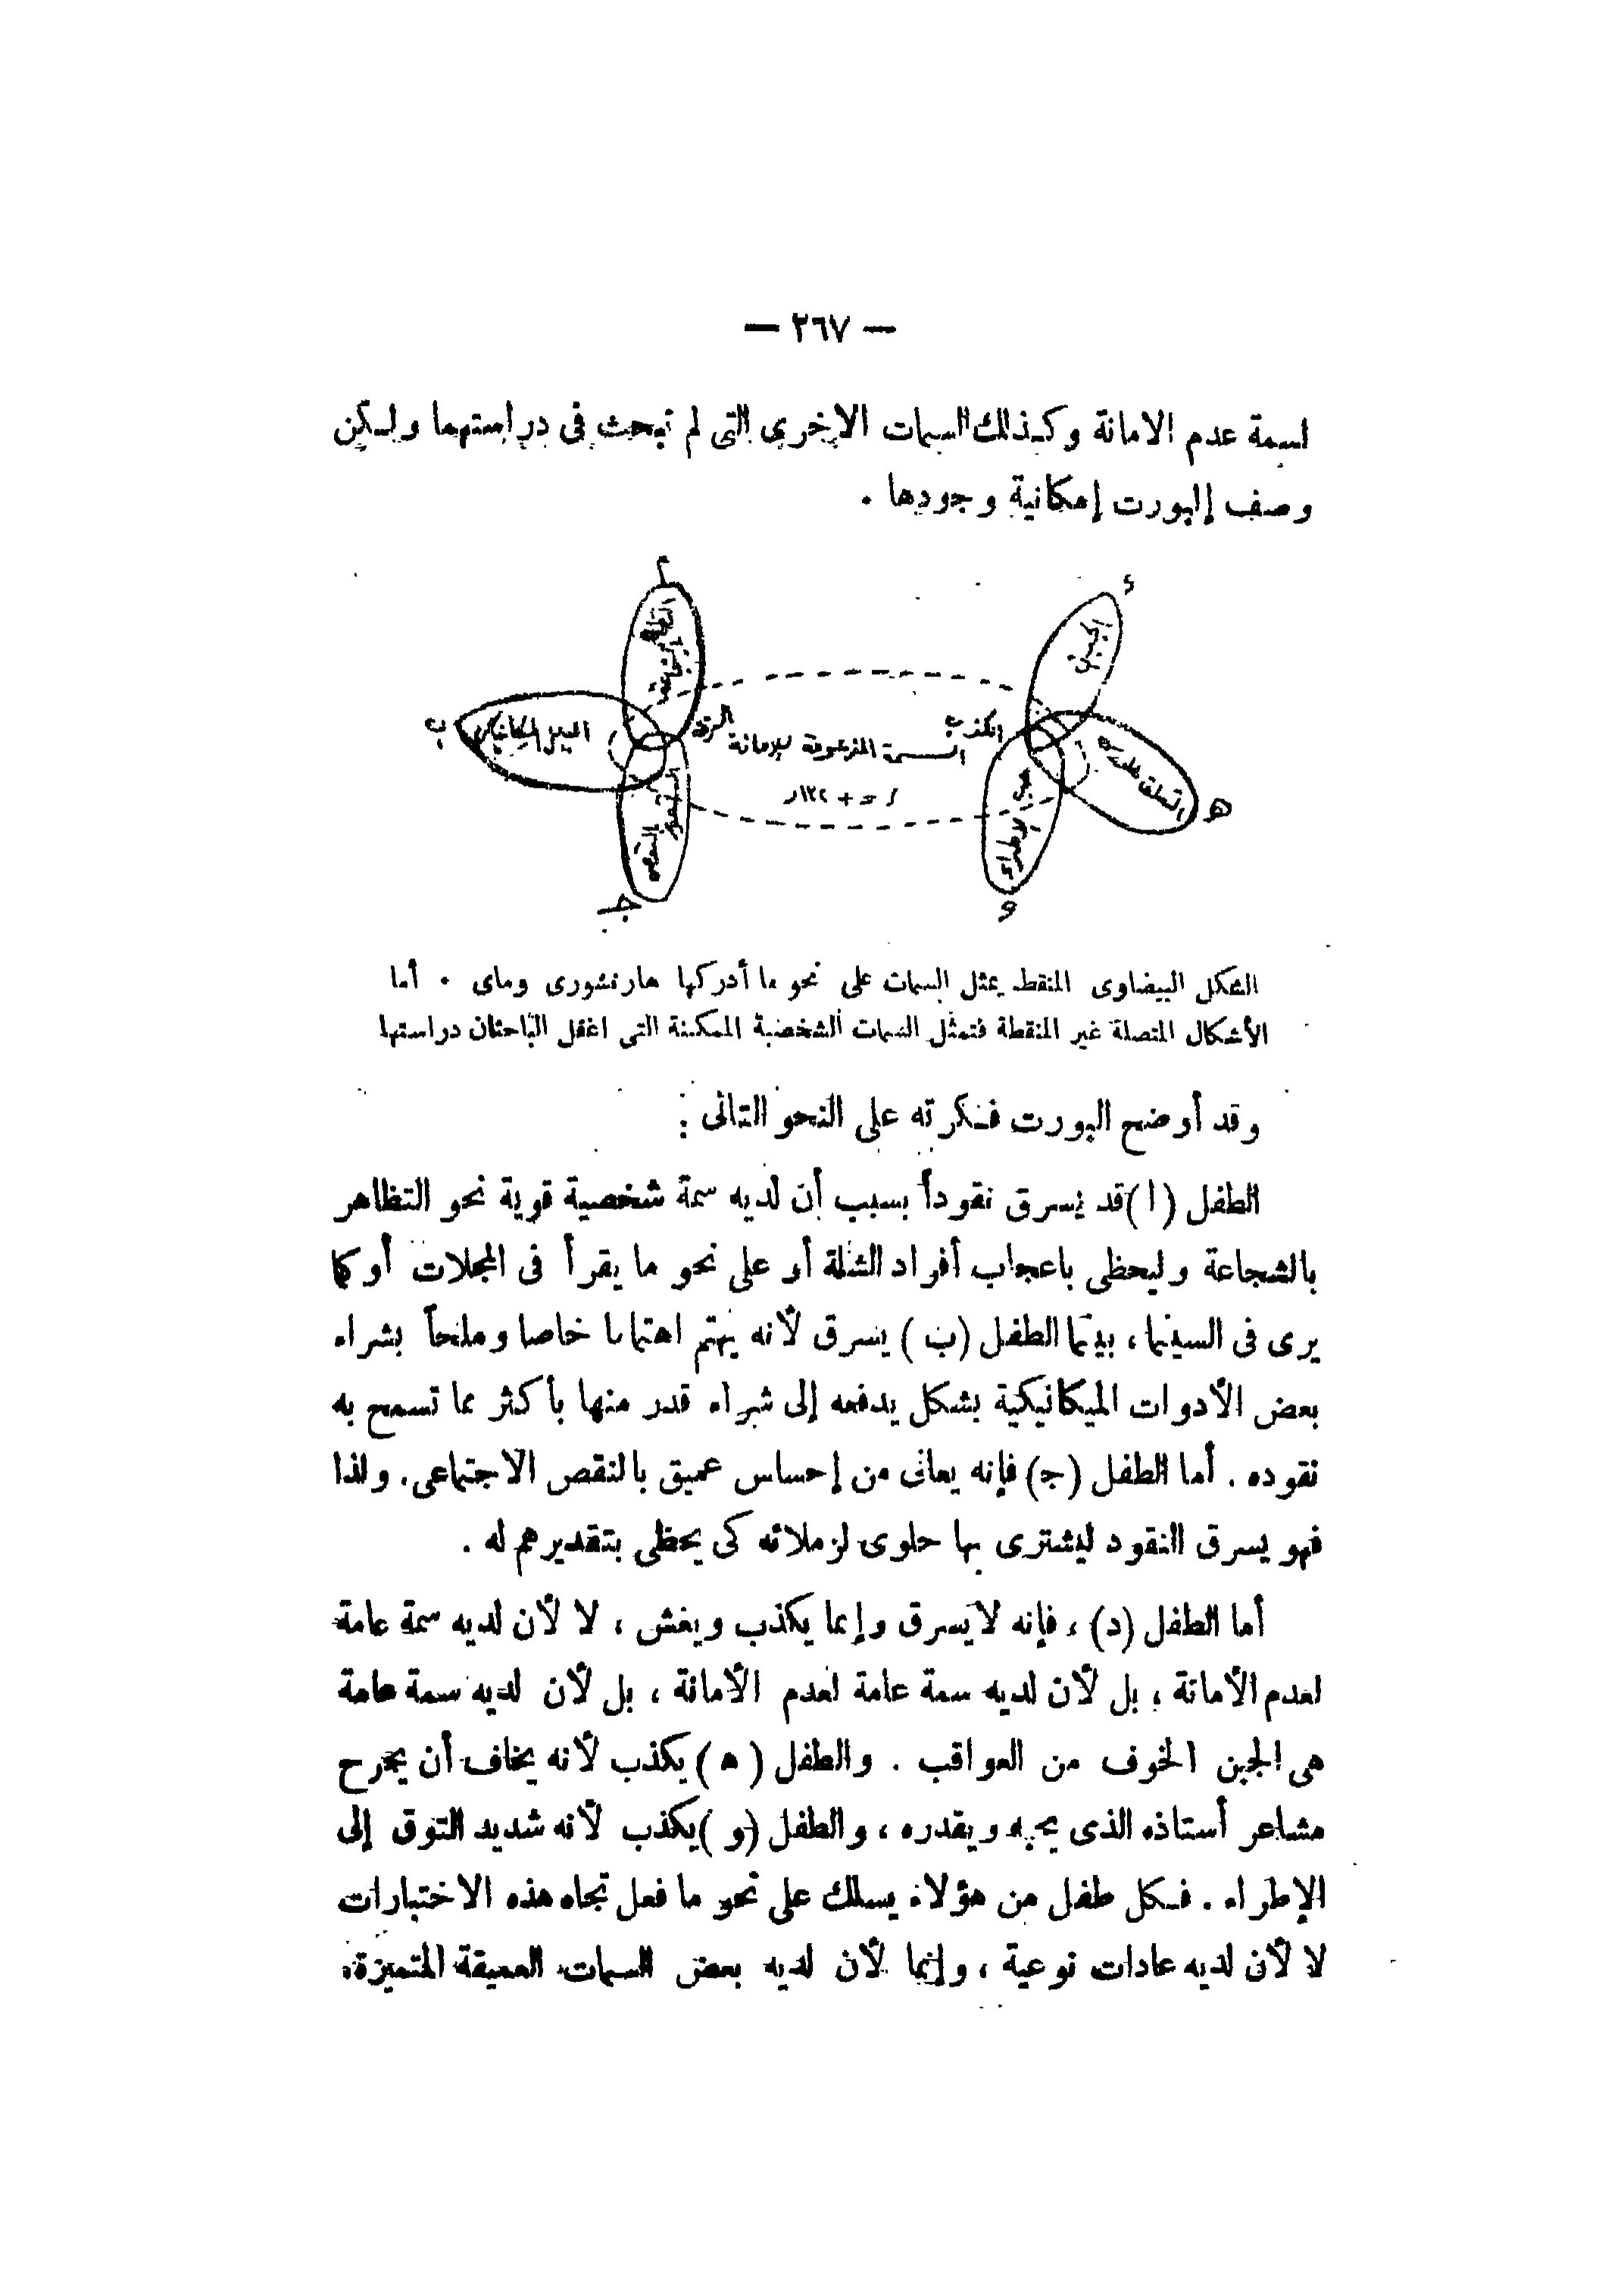 — ٢٦٧ —
لسمة عدم الامانة وكذلك السمات الاخرى التى لم تبحث فى دراستهما ولكن
وصف إلبورت إمكانية وجودها .
أ
ء
الجبن
الميل الميكانيكى
ب
السرقة
الكذب
السمة المزعومة للأمانة
ر = + ١٣٢ر
هـ
حب الاطراء
جـ
و
الشكل البيضاوى المنقط يمثل السمات على نحو ما أدركها هارتشورى وماى . أما
الأشكال المتصلة غير المنقطة فتمثل السمات الشخصية الممكنة التى اغفل الباحثان دراستها
وقد أوضح البورت فكرته على النحو التالى :
الطفل (ا) قد يسرق نقوداً بسبب أن لديه سمة شخصية قوية نحو التظاهر
بالشجاعة وليحظى باعجاب أفراد الشلة أو على نحو ما يقرأ فى المجلات أو كما
يرى فى السينما ، بينما الطفل (ب) يسرق لأنه يهتم اهتماما خاصا وملحاً بشراء
بعض الأدوات الميكانيكية بشكل يدفعه إلى شراء قدر منها بأكثر مما تسمح به
نقوده . أما الطفل (جـ) فإنه يعانى من إحساس عميق بالنقص الاجتماعى . ولذا
فهو يسرق النقود ليشترى بها حلوى لزملائه كى يحظى بتقديرهم له .
أما الطفل (د) ، فإنه لا يسرق وإنما يكذب ويغش ، لا لأن لديه سمة عامة
لعدم الأمانة ، بل لأن لديه سمة عامة لعدم الأمانة ، بل لأن لديه سمة عامة
هى الجبن الخوف من العواقب . والطفل (ه) يكذب لأنه يخاف أن يجرح
مشاعر أستاذه الذى يحبه ويقدره ، والطفل (و) يكذب لأنه شديد التوق إلى
الإطراء . فكل طفل من هؤلاء يسلك على نحو ما فعل تجاه هذه الاختبارات
لا لأن لديه عادات نوعية ، وإنما لأن لديه بعض السمات العميقة المتميزة .